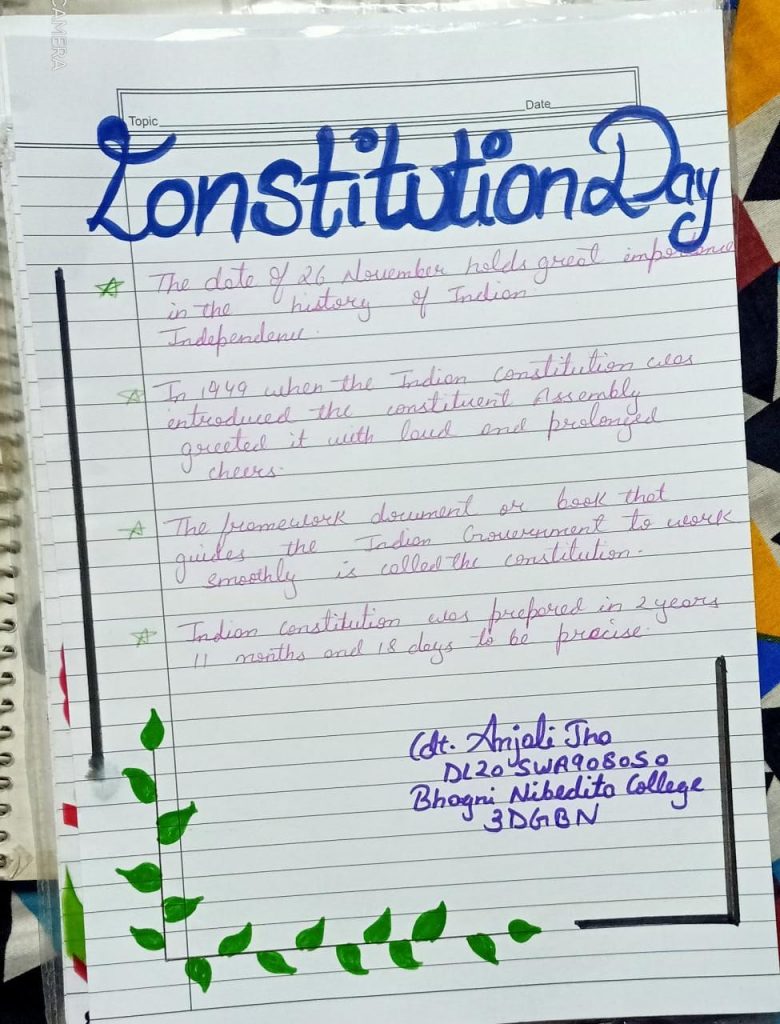 CAMERA
Date
Topic
Constitution Day
The date of 26 November holds great importance
in the history of Indian
Independence.
In 1949 when the Indian constitution was
introduced the constituent Assembly
greeted it with loud and prolonged
cheers.
The framework document or book that
guides the Indian Government to work
smoothly is called the constitution.
Indian constitution was prepared in 2 years
11 months and 18 days to be precise.
Cdt. Anjali Jha
DL20 SWA908050
Bhagni Nibedita College
3DGBN